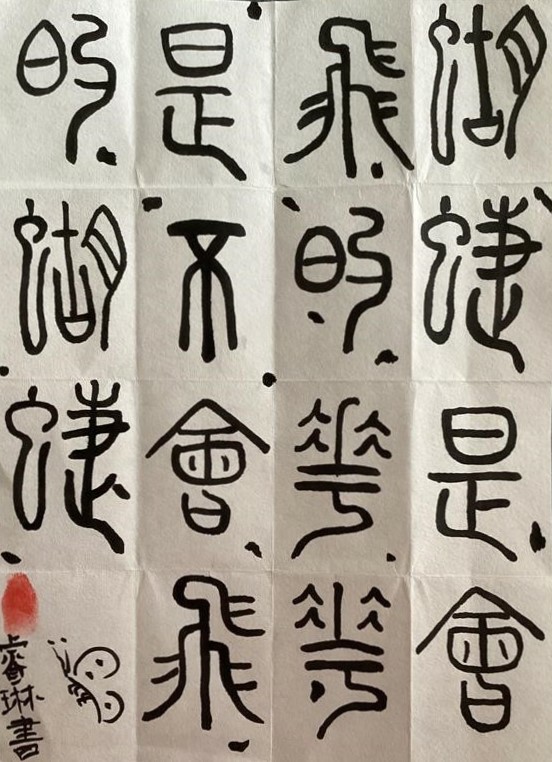 蝴蝶是會
飛的花花
是不會飛
的蝴蝶
睿琳書